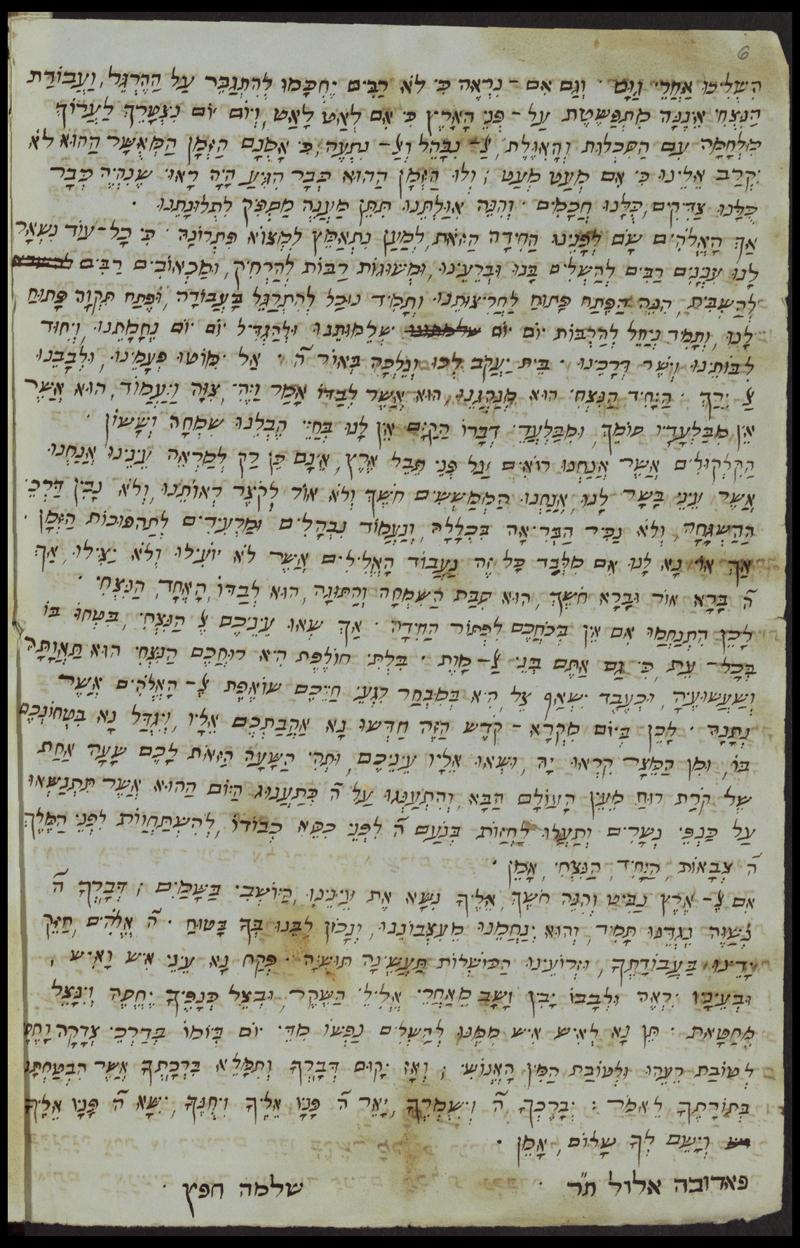 6
השליכו אחרי גום · וגם אם - נראה כי לא רבים יחכמו להתגבר על ההרגל, ועבודת
הנצחי איננה מתפשטת על - פני הארץ כי אם לאט לאט, ויום יום נצטרך לערוך
מלחמה עם הסכלות והאולת, אל נבהל ואל נתעה, כי אמנם הזמן המאשר ההוא לא
יקרב אלינו כי אם מעט מעט ; ולו הזמן ההוא כבר הגיע היה ראוי שנהיה כבר
כלנו צדיקים, כלנו חכמים · והנה אולתנו תתן מענה מספיק לתלונתנו ·
אך האלהים שם לפנינו החידה הזאת, למען נתאמץ למצוא פתרונה · כי כל - עוד נשאר
לנו ענינים רבים להשלים בנו וברעינו, ומשוגות רבות להרחיק, ומכאובים רבים
להשבית, הנה הפתח פתוח לחריצותנו ותמיד נוכל להתרגל בעבודה, ופתח תקוה פתוח
לנו, ותמיד ניחל להרבות יום יום שלמותנו ולהגדיל יום יום נחמתנו, ויחוד
לבותינו וישר דרכינו · בית יעקב לכו ונלכה באור ה׳ · אל ימוטו פעמינו, ולבבנו
אל ירך · היחיד הנצחי הוא מנהגנו, הוא אשר לבדו אמר ויהי, צוה ויעמוד, הוא אשר
אין מבלעדיו סומך, ומבלעדי דברו הקים אין לנו בחיי הבלנו שמחה וששון ·
הקלקולים אשר אנחנו רואים על פני תבל ארץ, אינם כן רק למראה עינינו אנחנו
אשר עיני בשר לנו, אנחנו הממששים חשך ולא אור לקצר ראותנו, ולא נבין דרכי
ההשגחה, ולא נכיר הבריאה בכללה, ונעמוד נבהלים ומרעידים לתהפוכות הזמן ·
אך אוי נא לנו אם מלבד כל זה נעבוד האלילים אשר לא יועילו ולא יצילו, אך
ה׳ ברא אור וברא חשך, הוא סבת השמחה והתוגה, הוא לבדו, האחד, הנצחי ·
לכן התנחמו אם אין בכחכם לפתור החידה · אך שאו עיניכם אל הנצחי, בטחו בו
בכל - עת, כי גם אתם בני אל - מות · בלתי חולפת היא רוחכם הנצחי הוא תאותה
ושעשועיה, וכעבד ישאף צל, היא במבחר רגעי חייכם שואפת אל - האלהים אשר
נתנה · לכן ביום מקרא - קדש הזה חדשו נא אהבתכם אליו, ויגדל נא בטחונכם
בו, ומן המצר קראו יה, ושאו אליו עיניכם, ותהי השעה הזאת לכם שעה אחת
של קרת רוח מעין העולם הבא, והתענגו על ה׳ כתענוג היום ההוא אשר תתנשאו
על כנפי נשרים ותעלו לחזות בנעם ה׳ לפני כסא כבודו, להשתחוות לפני המלך
ה׳ צבאות, היחיד, הנצחי, אמן ·
אם אל - ארץ נביט והנה חשך, אליך נשא את עינינו, היושבי בשמים ; דברך ה׳
נשוה נגדנו תמיד, והוא ינחמנו מעצבוננו, ונכון לבנו בך בטוח · ה׳ אלהים, חזק
ידינו בעבודתך, וזרועינו הכושלות תעשינה תושיה · פקח נא עיני איש ואיש ;
ובעיניו יראה ולבבו יבין ושב מאחרי אלילי השקר, ובצל כנפיך יחסה וינצל
מחטאת · תן נא לאיש איש ממנו להשלים נפשו מדי יום ביומו בדרכי צדקה וחסד
לטובת רעהו ולטובת המין האנושי ; ואז יקום דברך ותמלא ברכתך אשר הבטחתנו
בתורתך לאמר : יברכך ה׳ וישמרך, יאר ה׳ פניו אליך ויחנך, ישא ה׳ פניו אליך
וישם לך שלום, אמן ·
פאדובה אלול ת״ר · שלמה חפץ ·